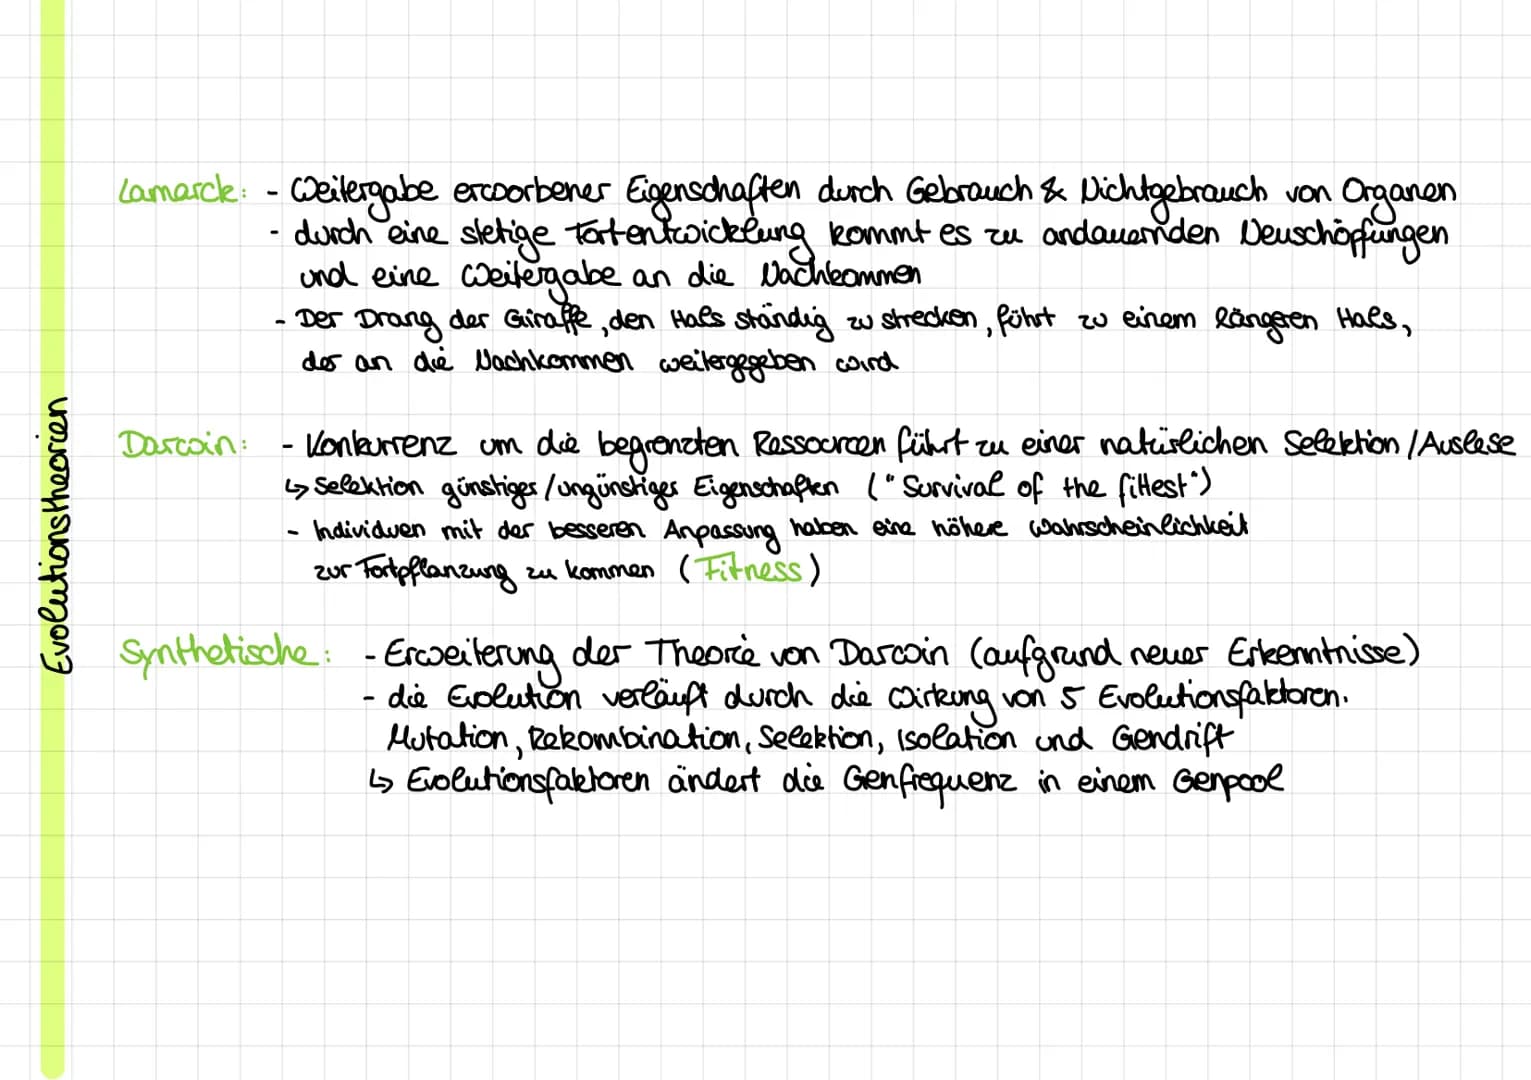 Evolutionstheorien
Lamarck: - Weitergabe erworbener Eigenschaften durch Gebrauch & Nichtgebrauch von Organen
- durch eine stetige Fortentwicklung kommt es zu andauernden Neuschöpfungen
und eine Weitergabe an die Nachkommen
- Der Drang der Giraffe, den Hals ständig zu strecken, führt zu einem längeren Hals,
der an die Nachkommen weitergegeben wird
Darwin: - Konkurrenz um die begrenzten Ressourcen führt zu einer natürlichen Selektion / Auslese
↳ Selektion günstiger / ungünstiger Eigenschaften ("Survival of the fittest")
- Individuen mit der besseren Anpassung haben eine höhere Wahrscheinlichkeit
zur Fortpflanzung zu kommen (Fitness)
Synthetische: - Erweiterung der Theorie von Darwin (aufgrund neuer Erkenntnisse)
- die Evolution verläuft durch die Wirkung von 5 Evolutionsfaktoren.
Mutation, Rekombination, Selektion, Isolation und Gendrift
↳ Evolutionsfaktoren ändert die Genfrequenz in einem Genpool